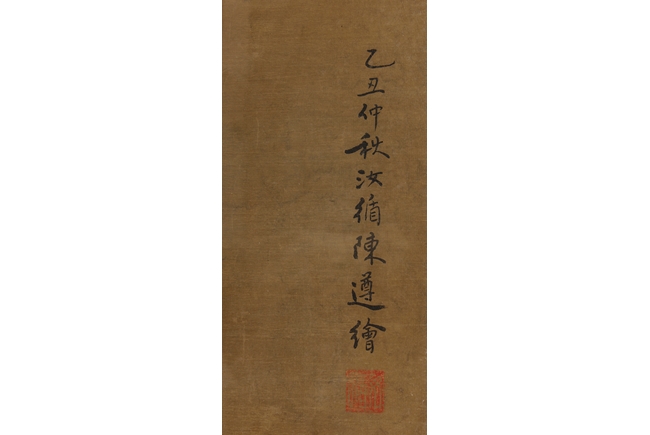 乙丑仲秋汝循陳遵繪